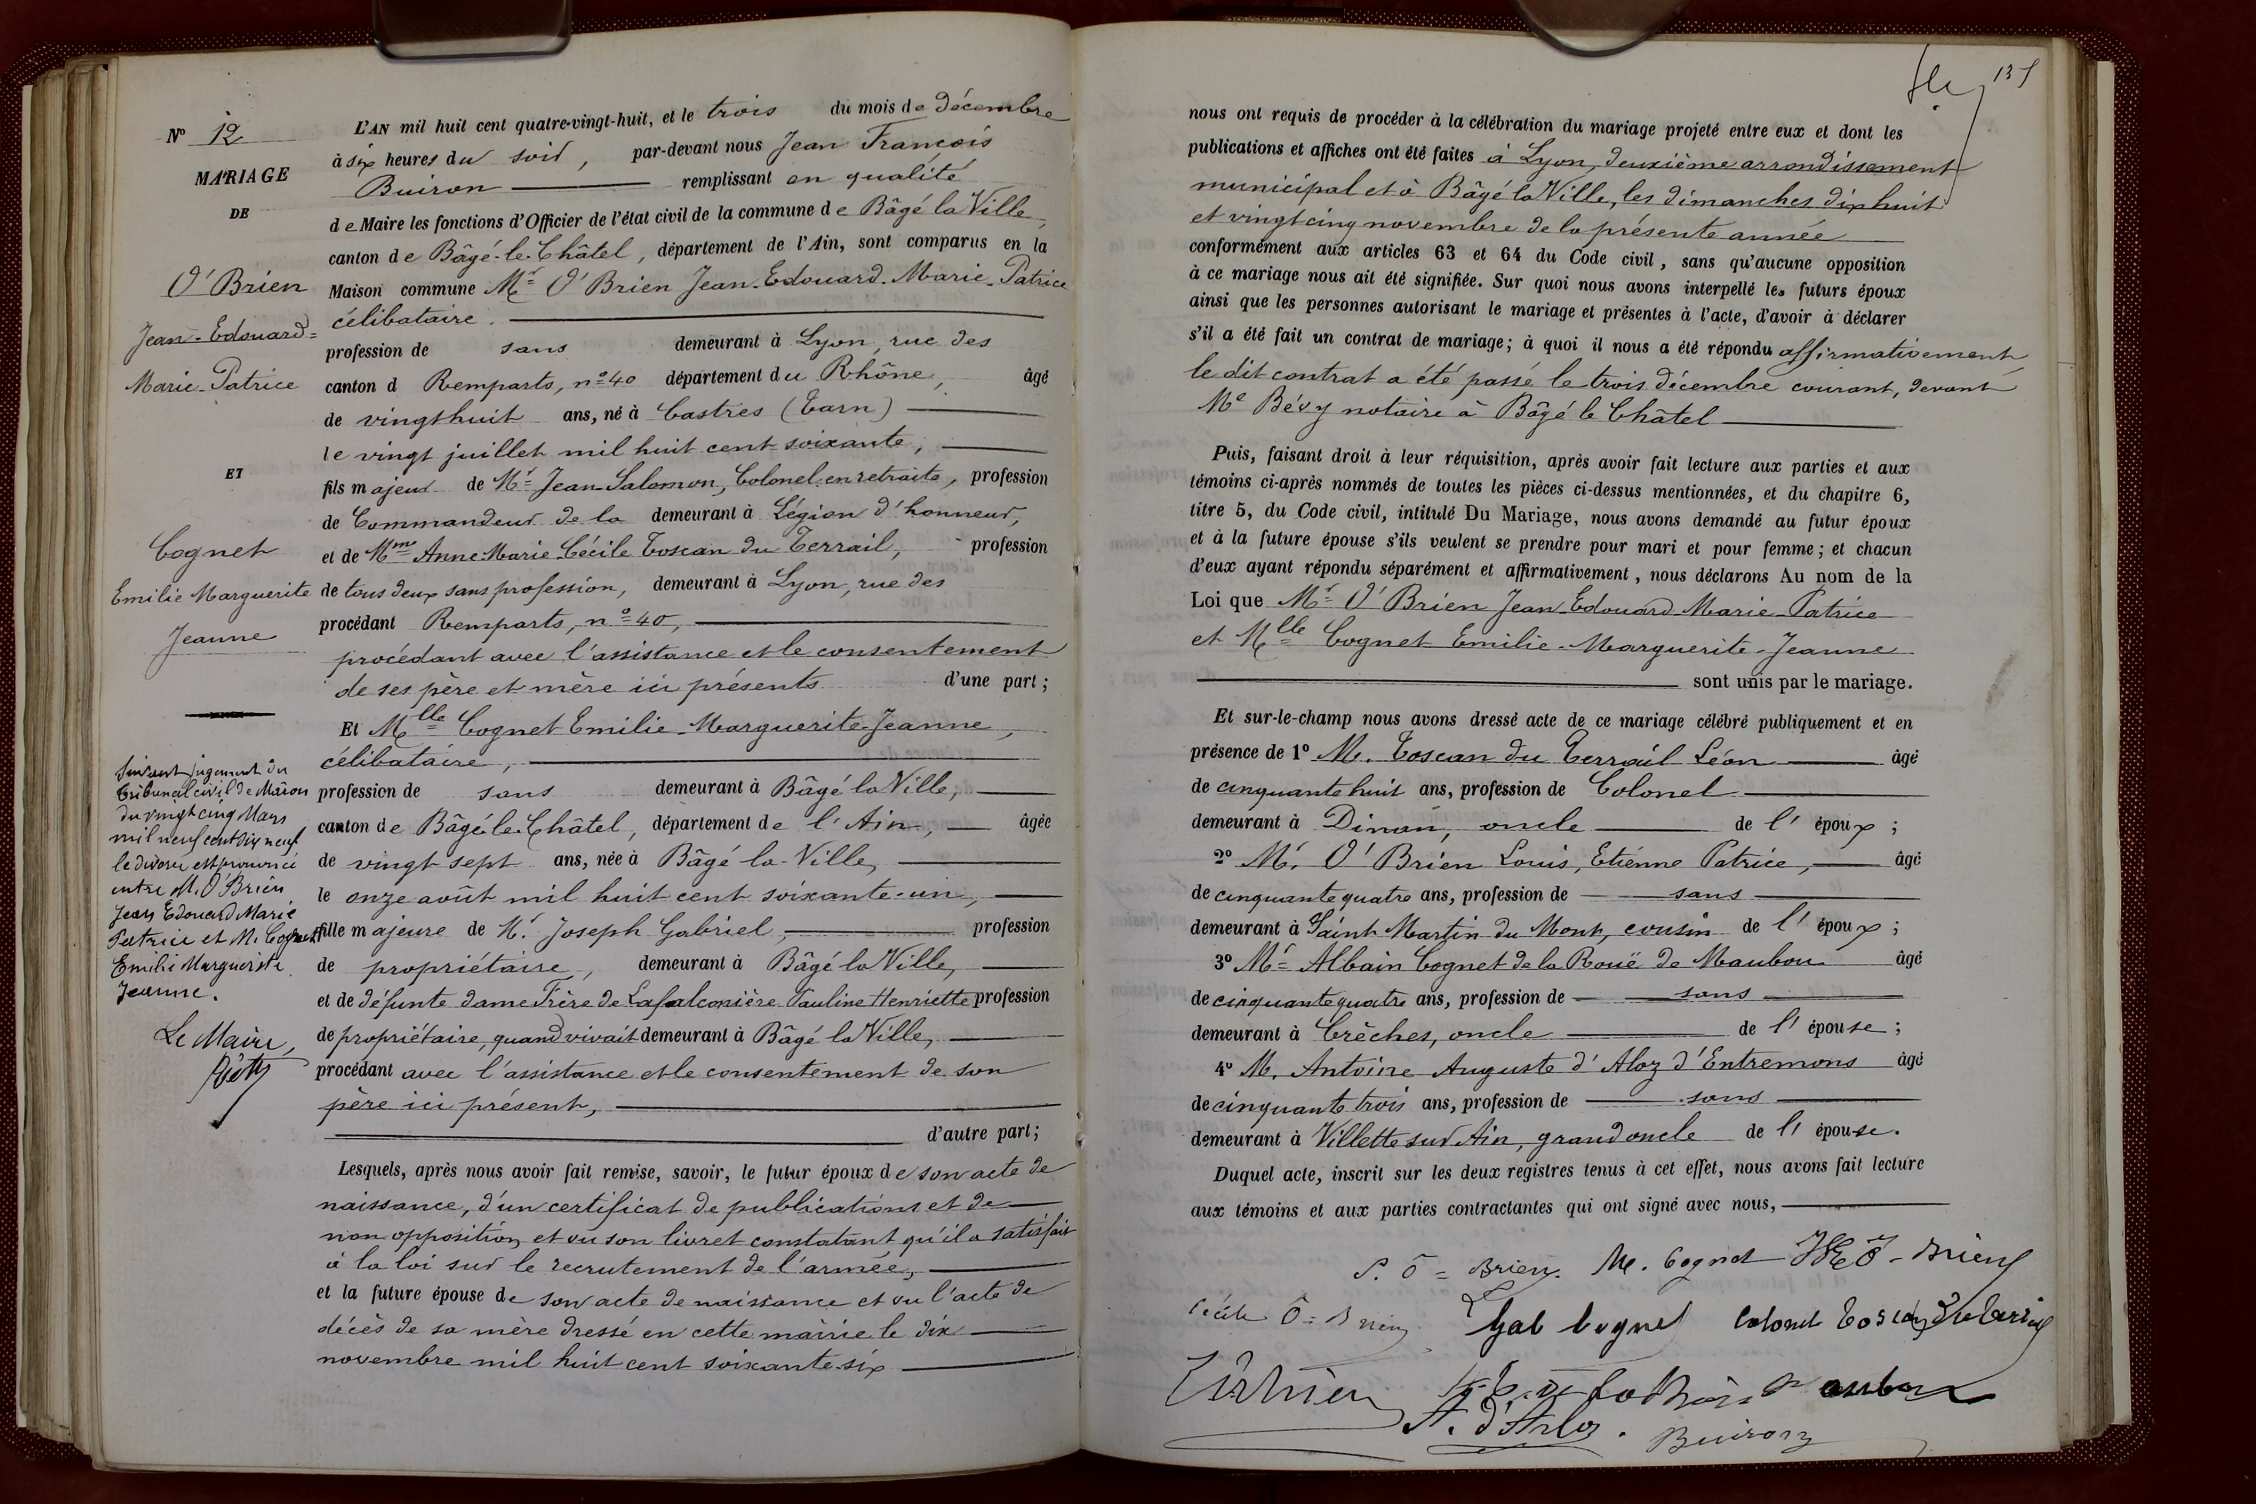 N° 12
MARIAGE
DE
O'Brien
Jean-Edouard-
Marie-Patrice
ET
Cognet
Emilie Marguerite
Jeanne
Suivant jugement du
Tribunal civil de Mâcon
du vingt cinq Mars
mil neuf cent dix neuf
le divorce est prononcé
entre M. O'Brien
Jean Edouard Marie
Patrice et M. Cognet
Emilie Marguerite
Jeanne.
Le Maire,
L'AN mil huit cent quatre-vingt-huit, et le trois du mois de décembre
à six heures du soir, par-devant nous Jean François
Buiron remplissant en qualité
de Maire les fonctions d'Officier de l'état civil de la commune de Bâgé la Ville,
canton de Bâgé-le-Châtel, département de l'Ain, sont comparus en la
Maison commune Mr O'Brien Jean-Edouard-Marie-Patrice
célibataire.
profession de sans demeurant à Lyon, rue des
canton d Remparts, n° 40 département du Rhône, âgé
de vingt huit ans, né à Castres (Tarn)
le vingt juillet mil huit cent soixante,
fils majeur de Mr Jean-Salomon, Colonel en retraite, profession
de Commandeur de la demeurant à Légion d'honneur,
et de Mme Anne Marie Cécile Toscan du Terrail, profession
de tous deux sans profession, demeurant à Lyon, rue des
procédant Remparts, n° 40,
procédant avec l'assistance et le consentement
de ses père et mère ici présents d'une part;
Et Mlle Cognet Emilie-Marguerite-Jeanne,
célibataire,
profession de sans demeurant à Bâgé la Ville,
canton de Bâgé-le-Châtel, département de l'Ain, âgée
de vingt sept ans, née à Bâgé la-Ville,
le onze août mil huit cent soixante-un,
fille majeure de Mr. Joseph Gabriel, profession
de propriétaire, demeurant à Bâgé la Ville,
et de défunte dame Frère de Lafalconière Pauline Henriette profession
de propriétaire, quand vivait demeurant à Bâgé la Ville,
procédant avec l'assistance et le consentement de son
père ici présent,
d'autre part;
Lesquels, après nous avoir fait remise, savoir, le futur époux de son acte de
naissance, d'un certificat de publications et de
non opposition et vu son livret constatant qu'il a satisfait
à la loi sur le recrutement de l'armée,
et la future épouse de son acte de naissance et vu l'acte de
décès de sa mère dressé en cette mairie le dix
novembre mil huit cent soixante-six
137
nous ont requis de procéder à la célébration du mariage projeté entre eux et dont les
publications et affiches ont été faites à Lyon, deuxième arrondissement
municipal et à Bâgé la Ville, les dimanches dix huit
et vingt cinq novembre de la présente année
conformément aux articles 63 et 64 du Code civil, sans qu'aucune opposition
à ce mariage nous ait été signifiée. Sur quoi nous avons interpellé les futurs époux
ainsi que les personnes autorisant le mariage et présentes à l'acte, d'avoir à déclarer
s'il a été fait un contrat de mariage; à quoi il nous a été répondu affirmativement
le dit contrat a été passé le trois décembre courant, devant
Me Bévy notaire à Bâgé le Châtel
Puis, faisant droit à leur réquisition, après avoir fait lecture aux parties et aux
témoins ci-après nommés de toutes les pièces ci-dessus mentionnées, et du chapitre 6,
titre 5, du Code civil, intitulé Du Mariage, nous avons demandé au futur époux
et à la future épouse s'ils veulent se prendre pour mari et pour femme; et chacun
d'eux ayant répondu séparément et affirmativement, nous déclarons Au nom de la
Loi que Mr O'Brien Jean Edouard Marie Patrice
et Mlle Cognet Emilie-Marguerite-Jeanne
sont unis par le mariage.
Et sur-le-champ nous avons dressé acte de ce mariage célébré publiquement et en
présence de 1° M. Toscan du Terrail Léon âgé
de cinquante huit ans, profession de Colonel
demeurant à Dinan, oncle de l'époux;
2° Mr. O'Brien Louis, Etienne Patrice, âgé
de cinquante quatre ans, profession de sans
demeurant à Saint Martin du Mont, cousin de l'époux;
3° Mr Albain Cognet de la Rouë de Maubou âgé
de cinquante quatre ans, profession de sans
demeurant à Crêches, oncle de l'épouse;
4° M. Antoine Auguste d'Aloz d'Entremons âgé
de cinquante trois ans, profession de sans
demeurant à Villette sur Ain, grand oncle de l'épouse.
Duquel acte, inscrit sur les deux registres tenus à cet effet, nous avons fait lecture
aux témoins et aux parties contractantes qui ont signé avec nous,
P. O=Brien. M. Cognet O-Brien
Cécile O=Brien Gab Cognet Colonel Toscan du Terrail
Buiron